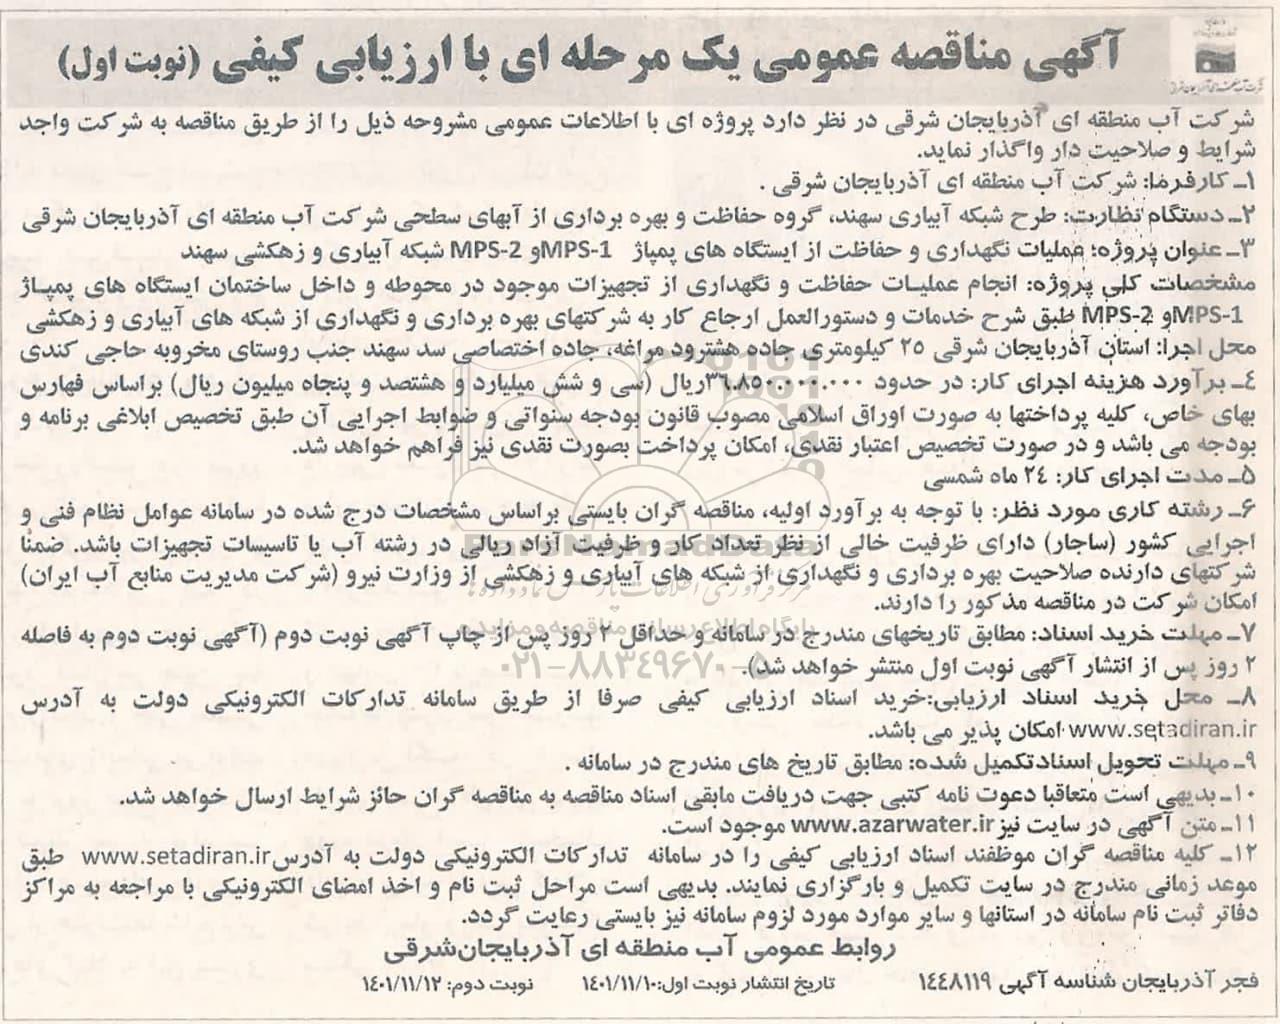 آگهی مناقصه عمومی یک مرحله ای با ارزیابی کیفی (نوبت اول)
شرکت آب منطقه ای آذربایجان شرقی در نظر دارد پروژه ای با اطلاعات عمومی مشروحه ذیل را از طریق مناقصه به شرکت واجد
شرایط و صلاحیت دار واگذار نماید.
۱ـ کارفرما: شرکت آب منطقه ای آذربایجان شرقی .
۲ـ دستگاه نظارت: طرح شبکه آبیاری سهند، گروه حفاظت و بهره برداری از آبهای سطحی شرکت آب منطقه ای آذربایجان شرقی
۳ـ عنوان پروژه: عملیات نگهداری و حفاظت از ایستگاه های پمپاژ MPS-1و MPS-2 شبکه آبیاری و زهکشی سهند
مشخصات کلی پروژه: انجام عملیات حفاظت و نگهداری از تجهیزات موجود در محوطه و داخل ساختمان ایستگاه های پمپاژ
MPS-1و MPS-2 طبق شرح خدمات و دستورالعمل ارجاع کار به شرکتهای بهره برداری و نگهداری از شبکه های آبیاری و زهکشی
محل اجرا: استان آذربایجان شرقی ۲۵ کیلومتری جاده هشترود مراغه، جاده اختصاصی سد سهند جنب روستای مخروبه حاجی کندی
۴ـ برآورد هزینه اجرای کار: در حدود ۳۶.۸۵۰.۰۰۰.۰۰۰ریال (سی و شش میلیارد و هشتصد و پنجاه میلیون ریال) براساس فهارس
بهای خاص، کلیه پرداختها به صورت اوراق اسلامی مصوب قانون بودجه سنواتی و ضوابط اجرایی آن طبق تخصیص ابلاغی برنامه و
بودجه می باشد و در صورت تخصیص اعتبار نقدی، امکان پرداخت بصورت نقدی نیز فراهم خواهد شد.
۵ـ مدت اجرای کار: ۲۴ ماه شمسی
۶ـ رشته کاری مورد نظر: با توجه به برآورد اولیه، مناقصه گران بایستی براساس مشخصات درج شده در سامانه عوامل نظام فنی و
اجرایی کشور (ساجار) دارای ظرفیت خالی از نظر تعداد کار و ظرفیت آزاد ریالی در رشته آب یا تاسیسات تجهیزات باشد. ضمنًا
شرکتهای دارنده صلاحیت بهره برداری و نگهداری از شبکه های آبیاری و زهکشی از وزارت نیرو (شرکت مدیریت منابع آب ایران)
امکان شرکت در مناقصه مذکور را دارند.
۷ـ مهلت خرید اسناد: مطابق تاریخهای مندرج در سامانه و حداقل ۲ روز پس از چاپ آگهی نوبت دوم (آگهی نوبت دوم به فاصله
۲ روز پس از انتشار آگهی نوبت اول منتشر خواهد شد).
۰۲۱-۸۸۳۴۹۶۷۰-۵
۸ـ محل خرید اسناد ارزیابی:خرید اسناد ارزیابی کیفی صرفا از طریق سامانه تدارکات الکترونیکی دولت به آدرس
www.setadiran.ir امکان پذیر می باشد.
۹ـ مهلت تحویل اسناد تکمیل شده: مطابق تاریخ های مندرج در سامانه .
۱۰ـ بدیهی است متعاقبا دعوت نامه کتبی جهت دریافت مابقی اسناد مناقصه به مناقصه گران حائز شرایط ارسال خواهد شد.
۱۱ـ متن آگهی در سایت نیز www.azarwater.ir موجود است.
۱۲ـ کلیه مناقصه گران موظفند اسناد ارزیابی کیفی را در سامانه تدارکات الکترونیکی دولت به آدرس www.setadiran.ir طبق
موعد زمانی مندرج در سایت تکمیل و بارگزاری نمایند. بدیهی است مراحل ثبت نام و اخذ امضای الکترونیکی با مراجعه به مراکز
دفاتر ثبت نام سامانه در استانها و سایر موارد مورد لزوم سامانه نیز بایستی رعایت گردد.
روابط عمومی آب منطقه ای آذربایجان‌شرقی
فجر آذربایجان شناسه آگهی ۱۴۴۸۱۱۹ تاریخ انتشار نوبت اول:۱۴۰۱/۱۱/۱۰ نوبت دوم: ۱۴۰۱/۱۱/۱۲